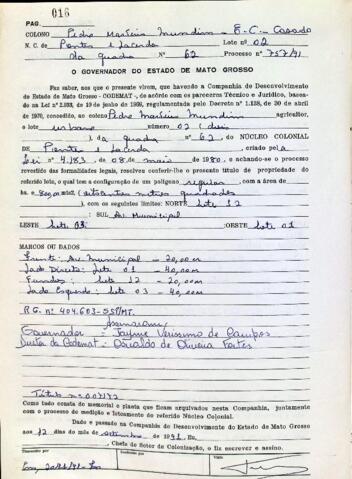 PAG. 016
COLONO Pedro Marcius Mundim - E.C. - Casado
N. C. de Pontes e Lacerda Lote nº 02
Da quadra Nº 62 Processo 757/91
O GOVERNADOR DO ESTADO DE MATO GROSSO
Faz saber, aos que o presente virem, que havendo a Companhia de Desenvolvimento
do Estado de Mato Grosso - CODEMAT -, de acôrdo com os pareceres Técnico e Jurídico, baseado
na Lei nº 2.933, de 19 de junho de 1969, regulamentada pelo Decreto nº 1.138, de 30 de abril
de 1970, concedido, ao colono Pedro Marcius Mundim
o lote urbano número 02 (dois)
), da quadra nº 62, do NÚCLEO COLONIAL
DE Pontes e Lacerda, criado pela
Lei nº 4.183, de 08, de maio de 1980, e achando-se o processo
revestido das formalidades legais, resolveu conferir-lhe o presente título de propriedade do
referido lote, o qual tem a configuração de um polígono regular com a área de
800,00 (oitocentos metros quadrados
), com os seguintes limites: NORTE Lote 12
SUL Av. Municipal
LESTE Lote 03 OESTE Lote 01
MARCOS OU DADOS
Frente: Av. Municipal - 20,00m
Lado Direito: Lote 01 - 40,00m
Fundos: Lote 12 - 20,00m
Lado Esquerdo: Lote 03 - 40,00m
R.G. nº 404.603-SSP/MT.
Assinaram:
Governador Jayme Veríssimo de Campos
da Codemat: Osvaldo de Oliveira Fortes
Título nº
Como tudo consta do memorial e planta que ficam arquivados nesta Companhia, juntamente
com o processo de medição e loteamento do referido Núcleo Colonial.
Dado e passado na Companhia de Desenvolvimento do Estado de Mato Grosso
aos 12 dias do mês de setembro de 1991, Eu,
, Chefe do Setor de Colonização, o fiz escrever e assino.
Transcrito por
Conferido
Visto